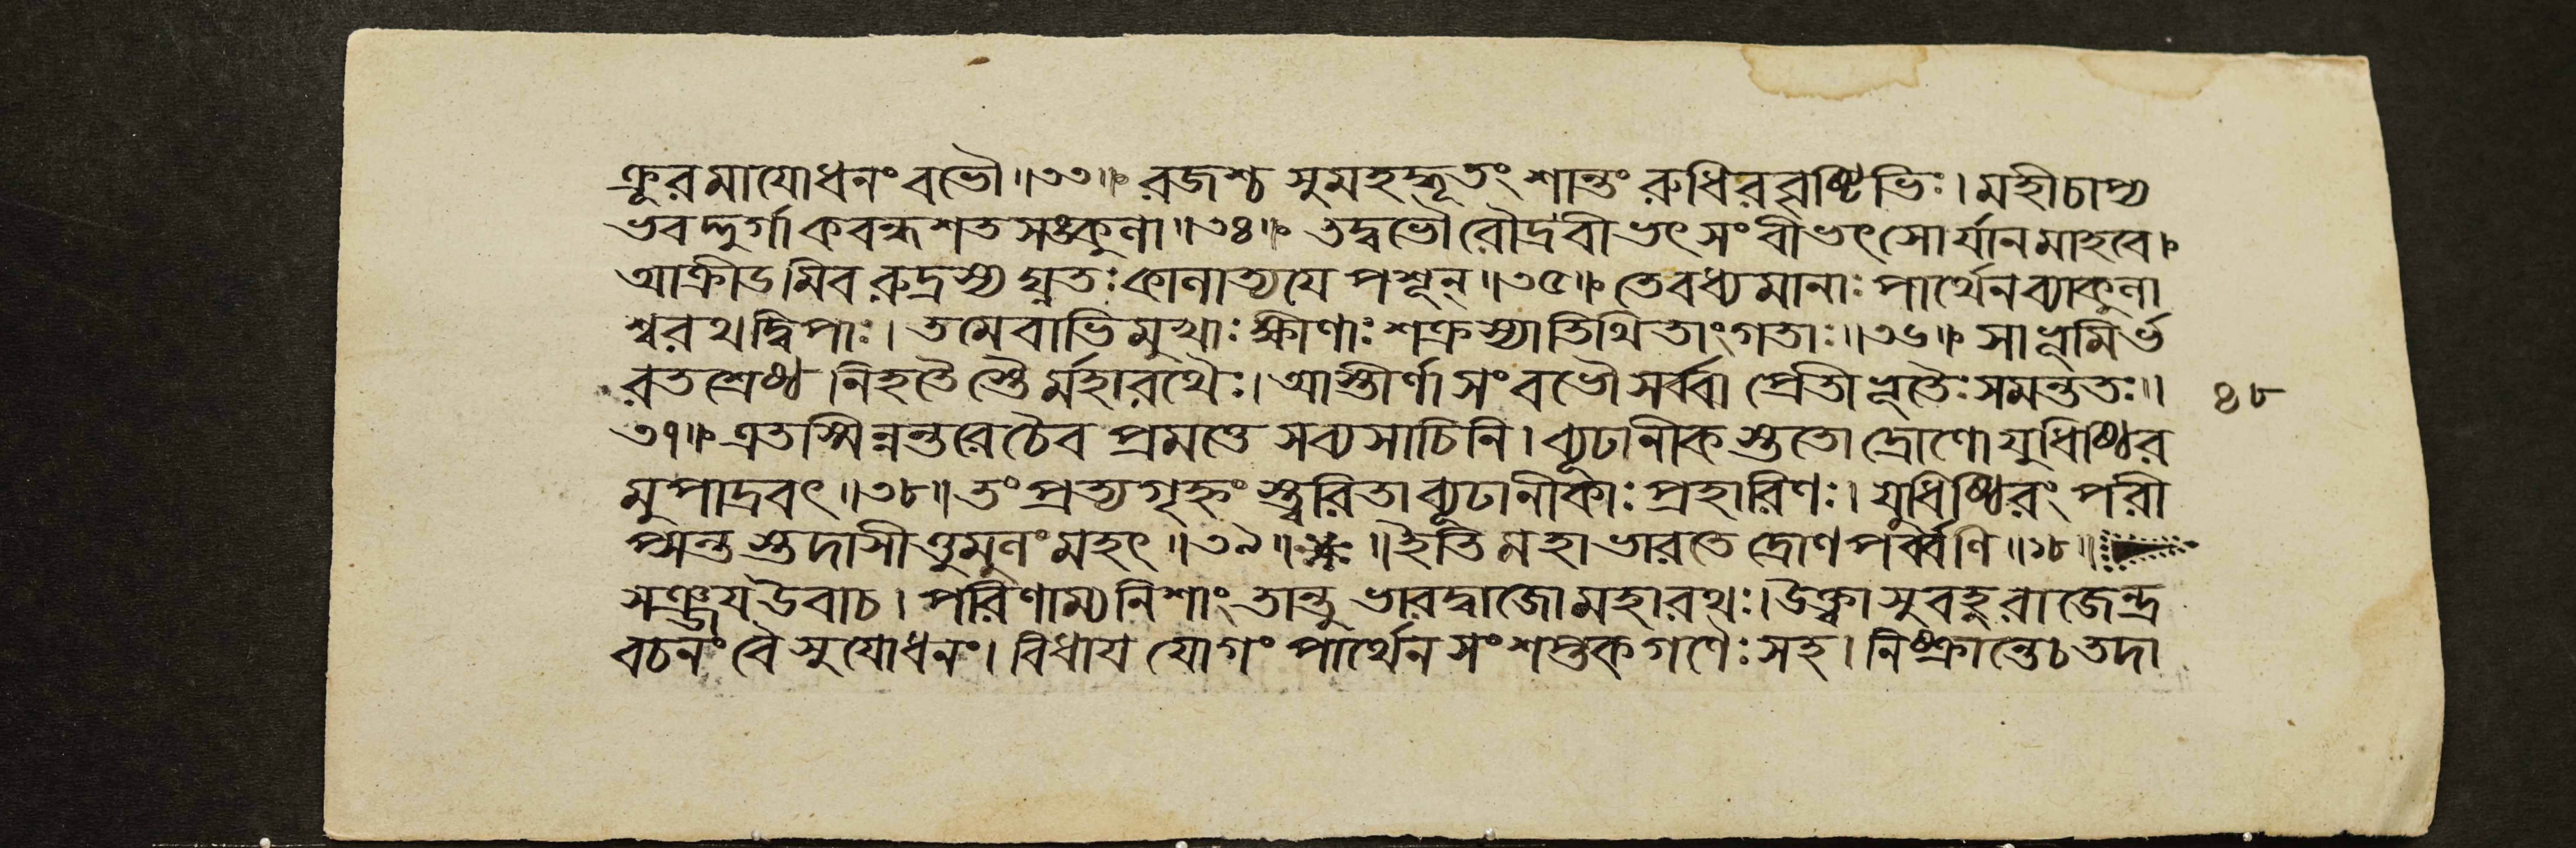 ক্রূরমাযোধনং বভৌ॥৩৩॥ রজশ্চ সুমহদ্ভূতং শান্তং রুধিরবৃষ্টিভিঃ। মহীচাপ্য
ভবদ্দুর্গা কবন্ধশতসঙ্কুলা॥৩৪॥ তদ্বভৌ রৌদ্রবীভৎসং বীভৎসোর্যানমাহবে।
আক্রীডমিব রুদ্রস্য ঘ্নতঃ কালাত্যযে পশূন্॥৩৫॥ তে বধ্যমানাঃ পার্থেন ব্যাকুলা
শ্বরথদ্বিপাঃ। তমেবাভিমুখাঃ ক্ষীণাঃ শক্রস্যাতিথিতাং গতাঃ॥৩৬॥ সা ভূমির্ভ
রতশ্রেষ্ঠ নিহতৈস্তৈর্মহারথৈঃ। আস্তীর্ণা সংবভৌ সর্ব্বা প্রেতীভূতৈঃ সমন্ততঃ॥
৪৮
৩৭॥ এতস্মিন্নন্তরে চৈব প্রমত্তে সব্যসাচিনি। ব্যূঢানীকস্ততো দ্রোণো যুধিষ্ঠির
মুপাদ্রবৎ॥৩৮॥ তং প্রত্যগৃহ্নংস্ত্বরিতা ব্যূঢানীকাঃ প্রহারিণঃ। যুধিষ্ঠিরং পরী
প্সন্তস্তদাসীত্তুমুলং মহৎ॥৩৯॥ ॥ইতি মহাভারতে দ্রোণপর্ব্বণি॥১৮॥
সঞ্জয উবাচ। পরিণাম্য নিশাং তান্তু ভারদ্বাজো মহারথঃ। উক্ত্বা সুবহু রাজেন্দ্র
বচনং বৈ সুযোধনং। বিধায যোগং পার্থেন সংশপ্তকগণৈঃ সহ। নিষ্ক্রান্তে চ তদা